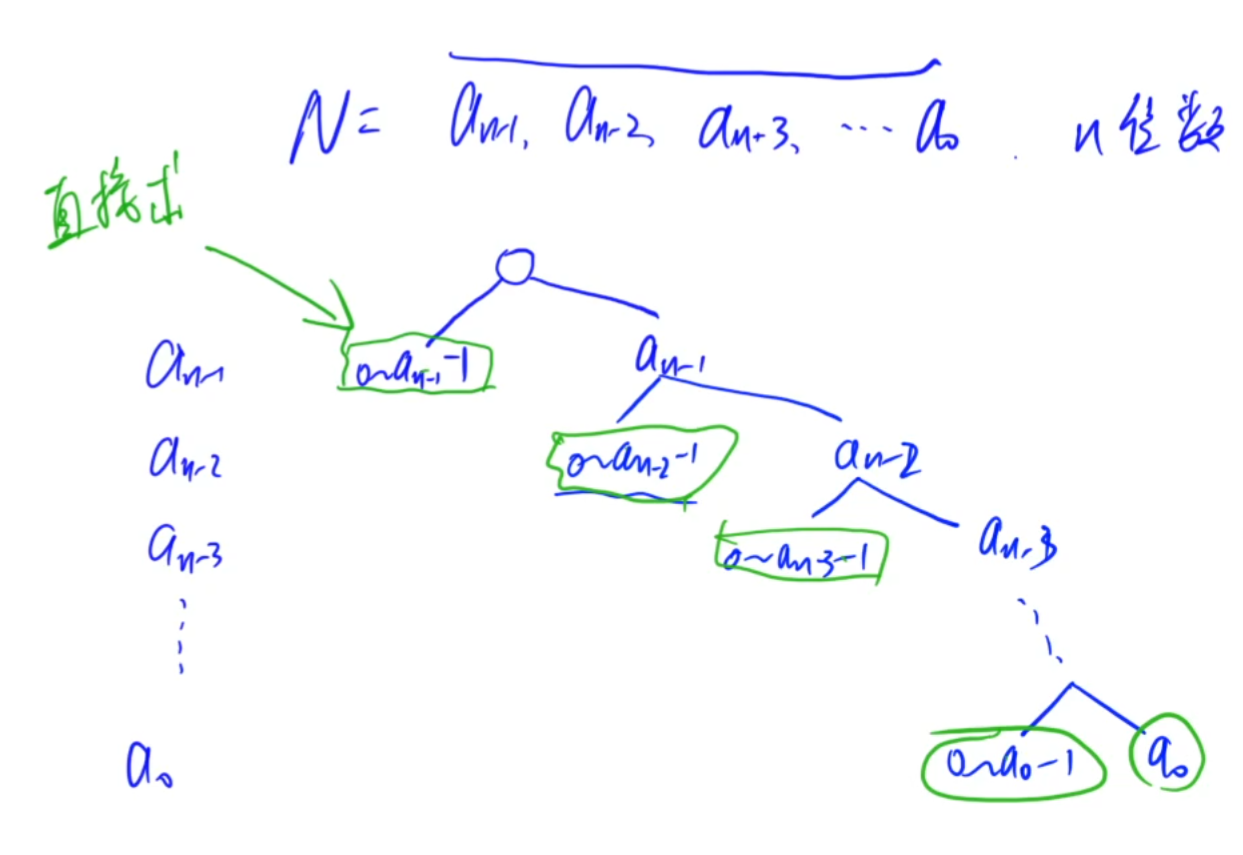 N = a_{n-1}, a_{n-2}, a_{n-3}, … a_0 . n位数
直接求
a_{n-1} 0~a_{n-1}-1 a_{n-1}
a_{n-2} 0~a_{n-2}-1 a_{n-2}
a_{n-3} 0~a_{n-3}-1 a_{n-3}
a_0 0~a_0-1 a_0